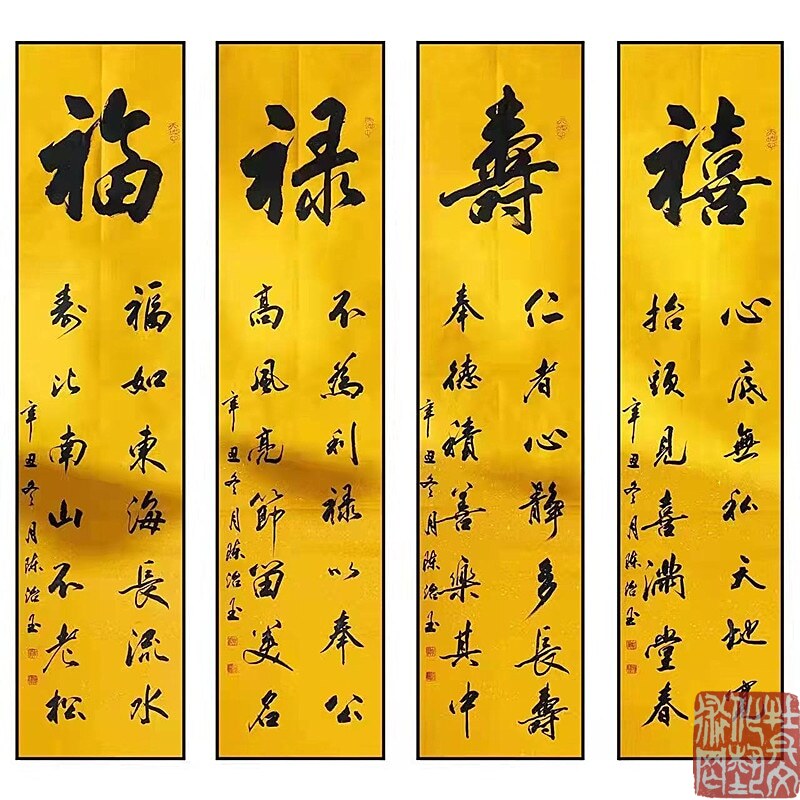 福
福如東海長流水
寿比南山不老松
辛丑冬月陈治玉
禄
不為利禄以奉公
高風亮節留美名
辛丑冬月陈治玉
壽
仁者心靜多長壽
奉德積善樂其中
辛丑冬月陈治玉
禧
心底無私天地寬
抬頭見喜滿堂春
辛丑冬月陈治玉